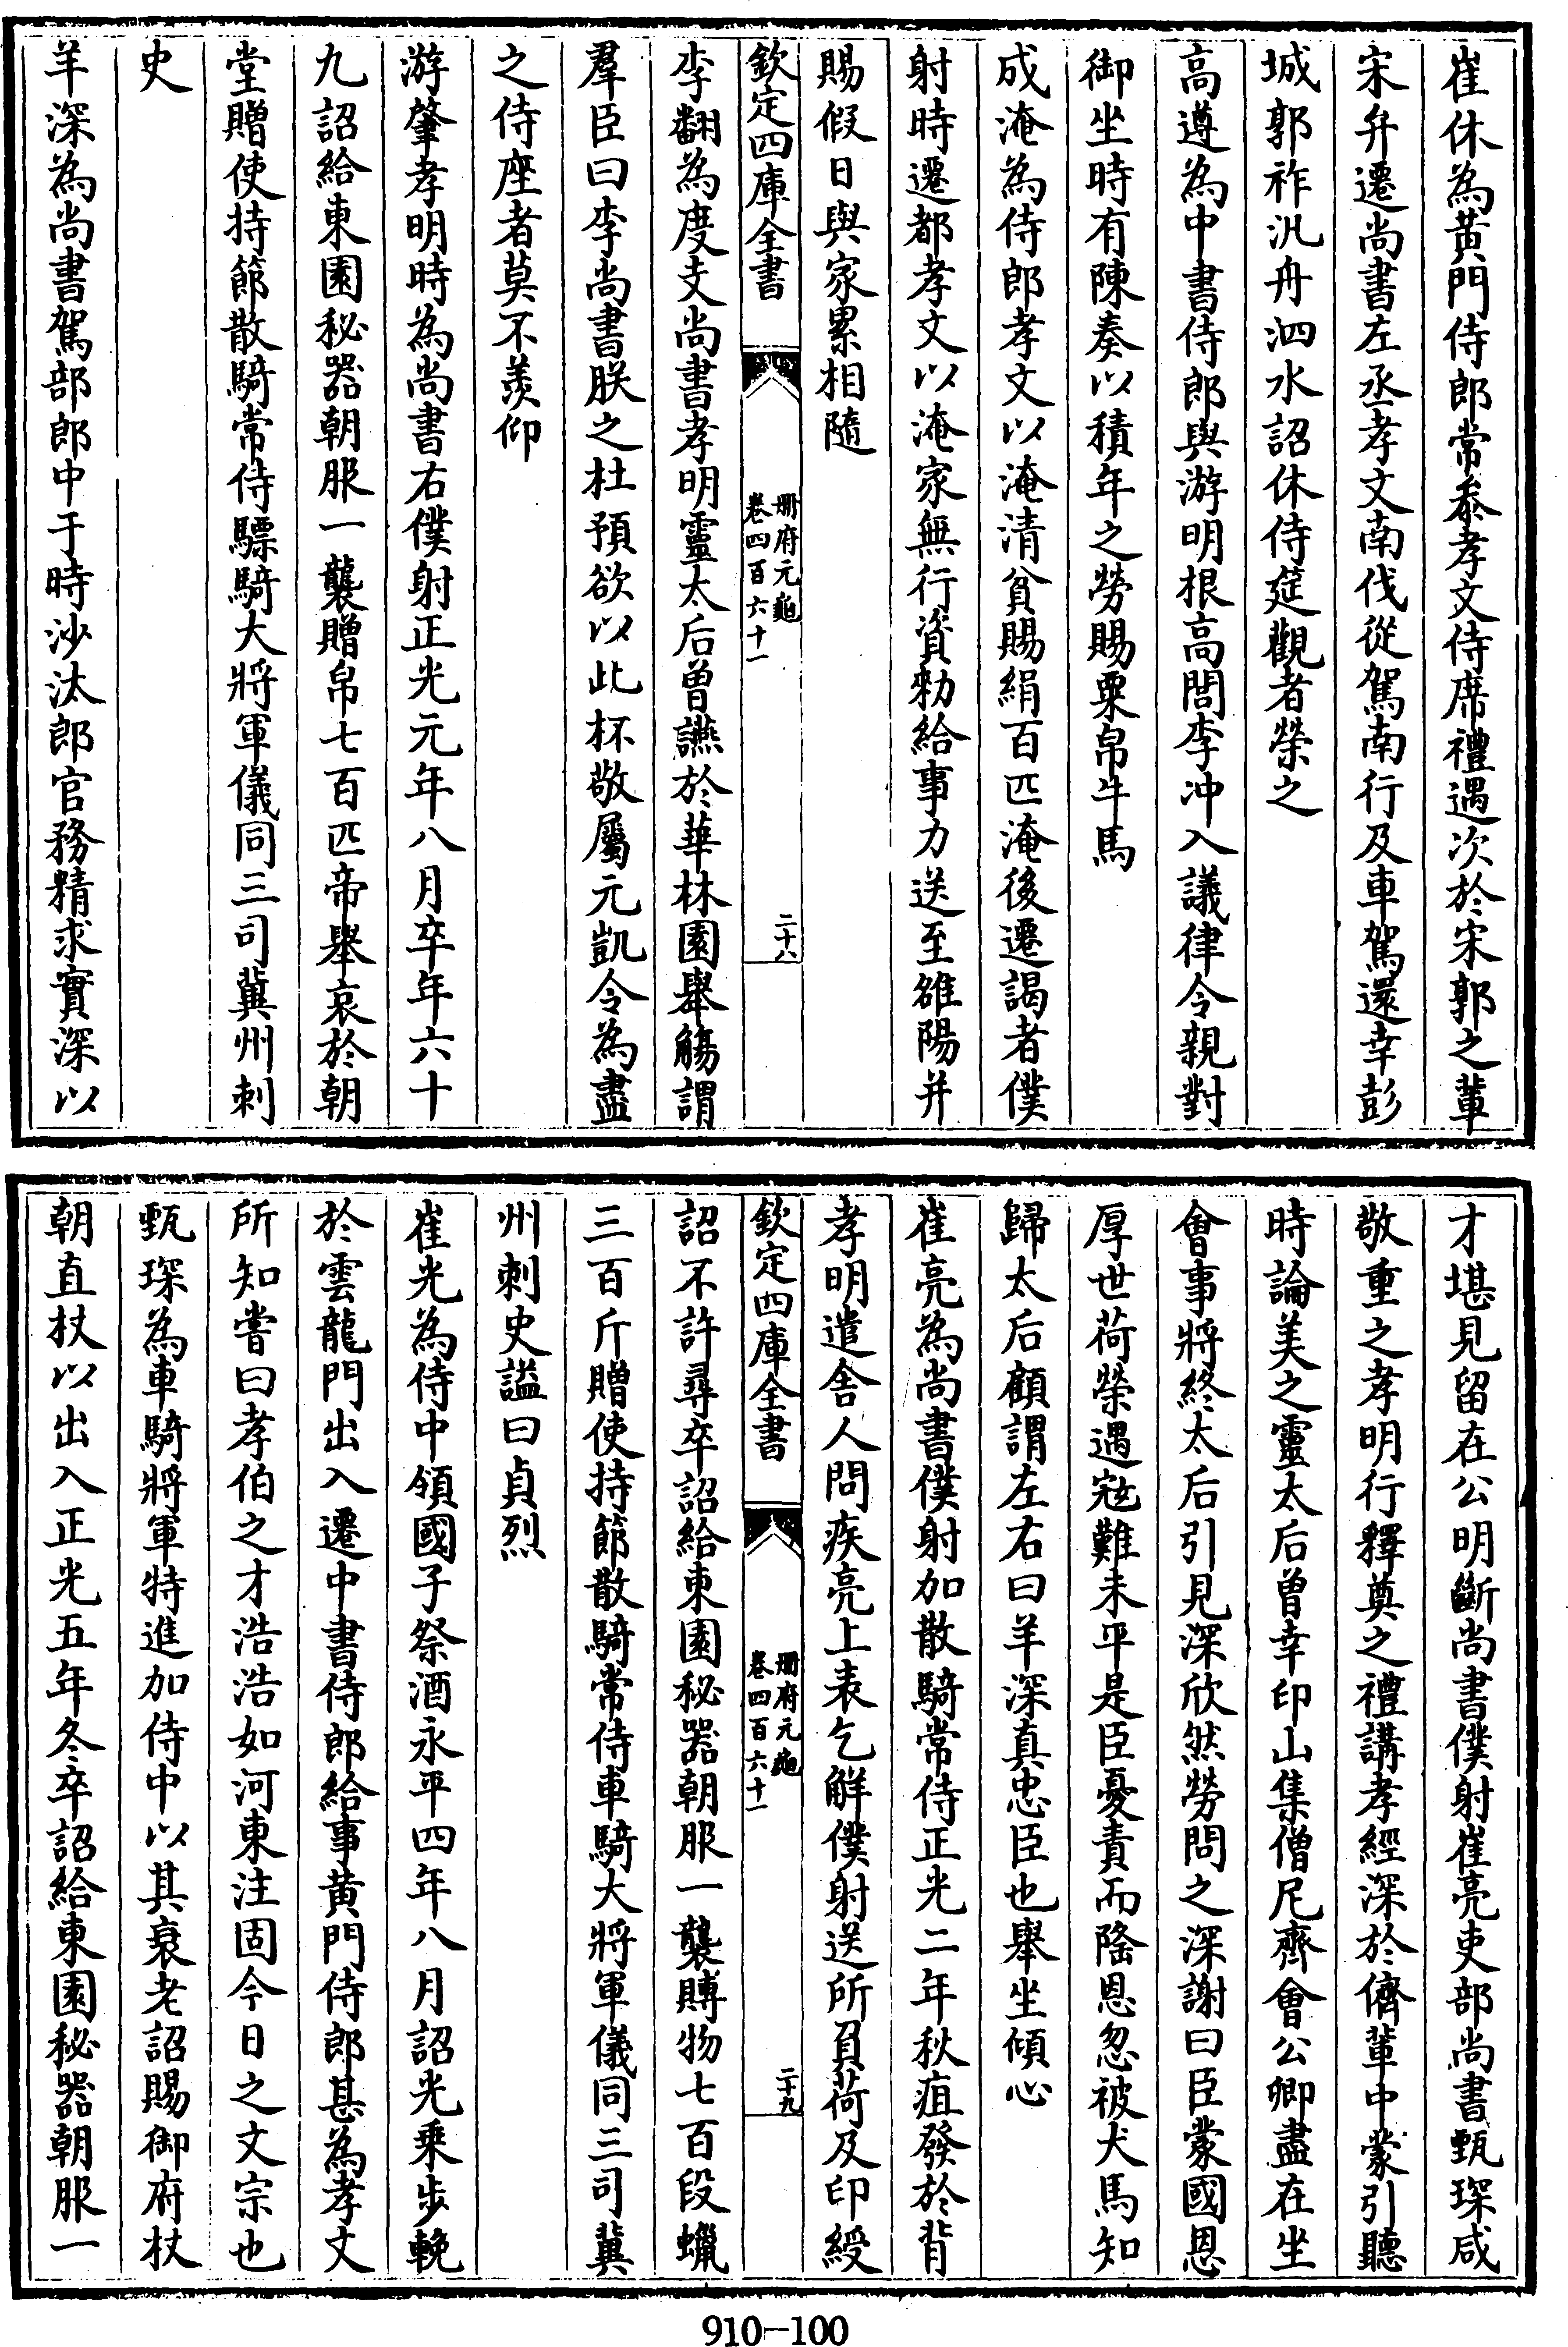 崔休為黃門侍郎常叅孝文侍席禮遇次於宋郭之輩
宋弁遷尚書左丞孝文南伐從駕南行及車駕還幸彭
城郭祚汎舟泗水詔休侍筵觀者榮之
高遵為中書侍郎與游明根高閭李冲入議律令親對
御坐時有陳奏以積年之勞賜粟帛牛馬
成淹為侍郎孝文以淹清貧賜絹百匹淹後遷謁者僕
射時遷都孝文以淹家無行資勑給事力送至雒陽并
賜假日與家累相隨
欽定四庫全書
冊府元龜
卷四百六十一
二十八
李翻為度支尚書孝明靈太后曾讌於華林園舉觴謂
羣臣曰李尚書朕之杜預欲以此杯敬屬元凱令為盡
之侍座者莫不羨仰
游肇孝明時為尚書右僕射正光元年八月卒年六十
九詔給東園秘器朝服一襲贈帛七百匹帝舉哀於朝
堂贈使持節散騎常侍驃騎大將軍儀同三司冀州刺
史
羊深為尚書駕部郎中于時沙汰郎官務精求實深以
才堪見留在公明斷尚書僕射崔亮吏部尚書甄琛咸
敬重之孝明行釋奠之禮講孝經深於儕輩中蒙引聽
時論美之靈太后曾幸印山集僧尼齊會公卿盡在坐
會事將終太后引見深欣然勞問之深謝曰臣蒙國恩
厚世荷榮遇寇難未平是臣憂責而隆恩忽被犬馬知
歸太后顧謂左右曰羊深真忠臣也舉坐傾心
崔亮為尚書僕射加散騎常侍正光二年秋疽發於背
孝明遣舍人問疾亮上表乞解僕射送所負荷及印綬
欽定四庫全書
冊府元龜
卷四百六十一
二十九
詔不許尋卒詔給東園秘器朝服一襲賻物七百段蠟
三百斤贈使持節散騎常侍車騎大將軍儀同三司冀
州刺史謚曰貞烈
崔光為侍中領國子祭酒永平四年八月詔光乘步輓
於雲龍門出入遷中書侍郎給事黃門侍郎甚為孝文
所知嘗曰孝伯之才浩浩如河東注固今日之文宗也
甄琛為車騎將軍特進加侍中以其衰老詔賜御府杖
朝直杖以出入正光五年冬卒詔給東園秘器朝服一
910-100